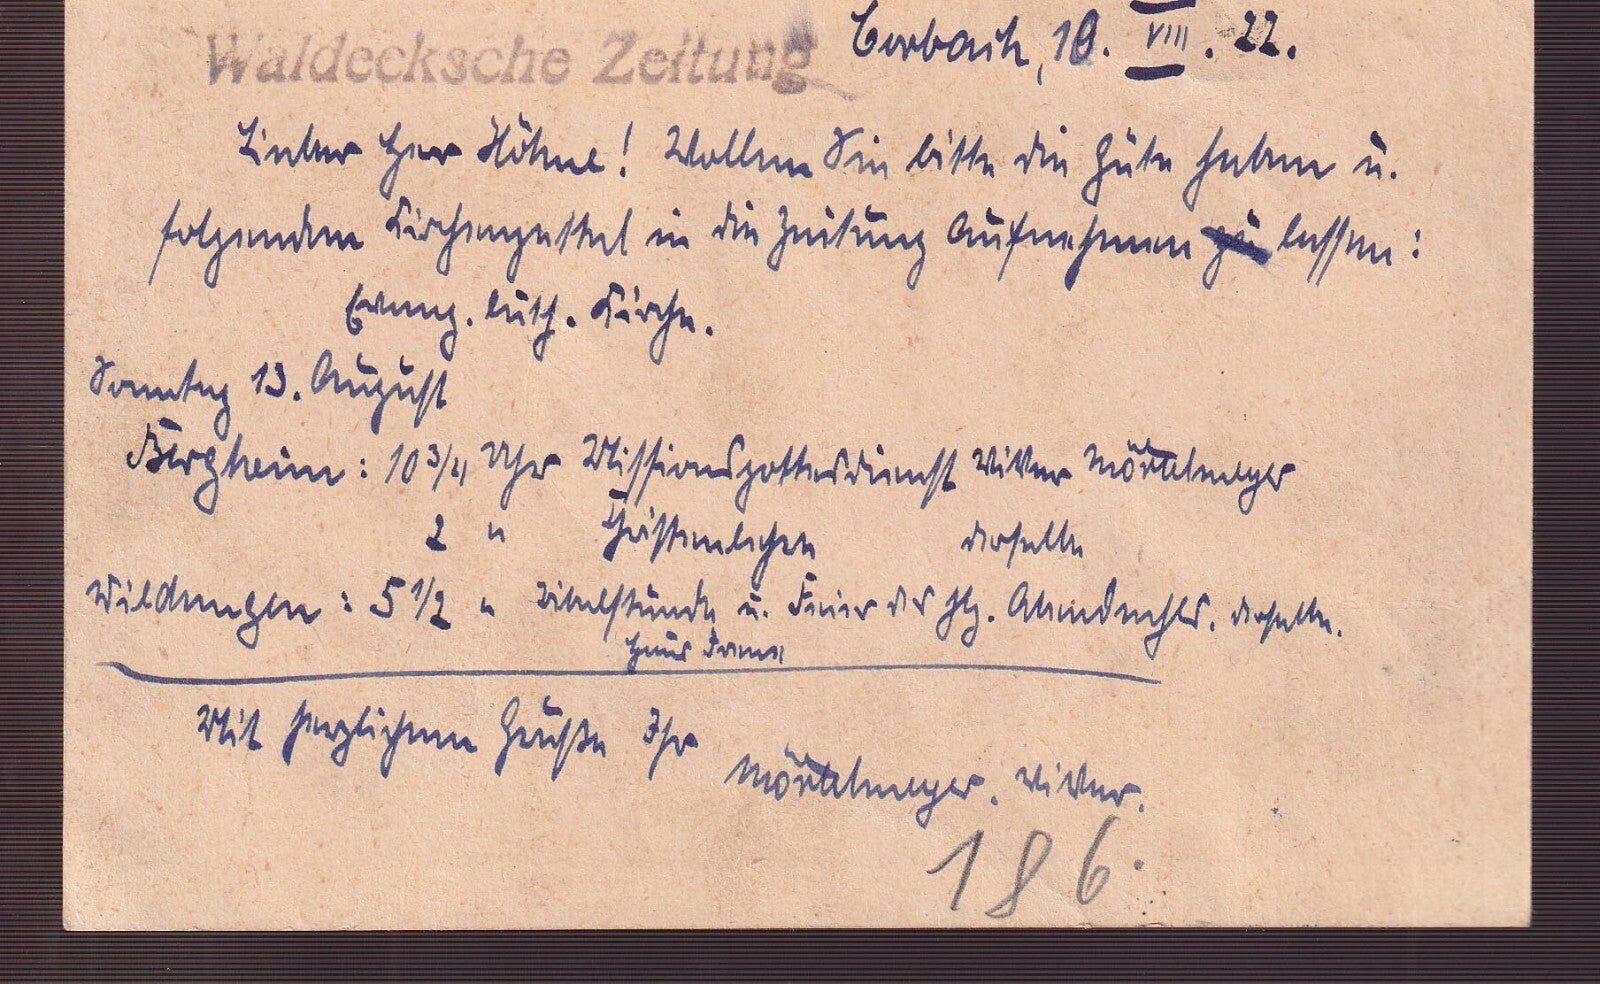 Waldecksche Zeitung
Corbach, 10. VIII. 22.
Lieber Herr Höhne! Wollen Sie bitte die Güte haben u.
folgenden Kirchenzettel in die Zeitung aufnehmen lassen:
Evang. luth. Kirche.
Sonntag 13. August
Bergheim: 10 3/4 Uhr Missionsgottesdienst Vikar
2 " derselbe
Wildungen: 5 1/2 " Bibelstunde u. Feier des hlg. Abendmahls. derselbe.
Haus
Mit herzlichem Gruße Ihr
Vikar.
186.